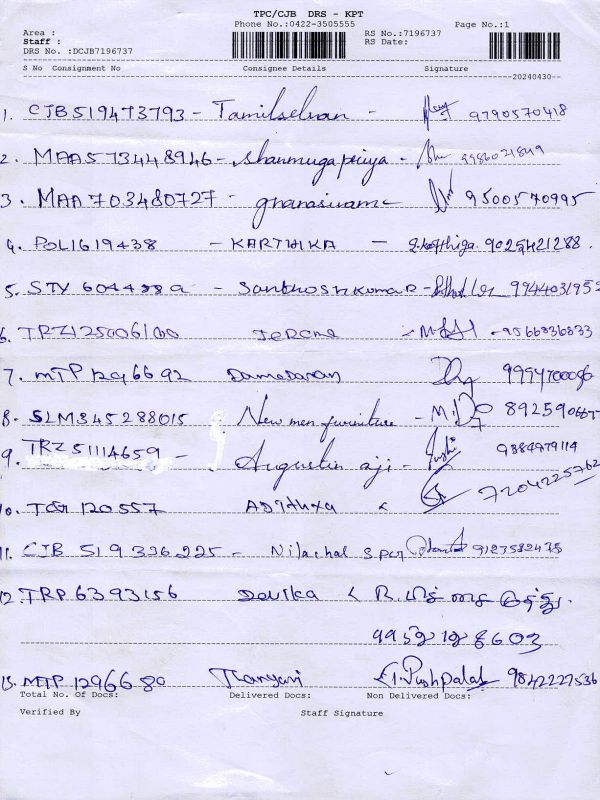 TPC/CJB DRS - KPT
Phone No.:0422-3505555 Page No.:1
Area :
Staff :
DRS No. :DCJB7196737
RS No.:7196737
RS Date:
S No Consignment No Consignee Details Signature
20240430
1. CJB519473793 - Tamilselvan - 9790570418
2. MAA573448946 - Shanmugapriya -
3. MAA703480727 - gnanasivam 9500570995
4. POL1619438 - KARTHIKA - S.karthiga. 9025421288.
5. STV 604438 - Santhoshkumar - 994403195
6. TRZ1250061 JEROME - 9566336833
7. MTP1296692 Damodaran
8. SLM345288015 New men furniture -
9. TRZ51114659 - Augustin aji - 9884979114
10. TCR 120557 Adithya < 7204225762
11. CJB 519326225 - Nilachal
12. TRP 6393156 Devika < R.
9952128603
13. MTP 1296680 T. Pushpalatha 9842227536
Total No. Of Docs: Delivered Docs: Non Delivered Docs:
Verified By Staff Signature